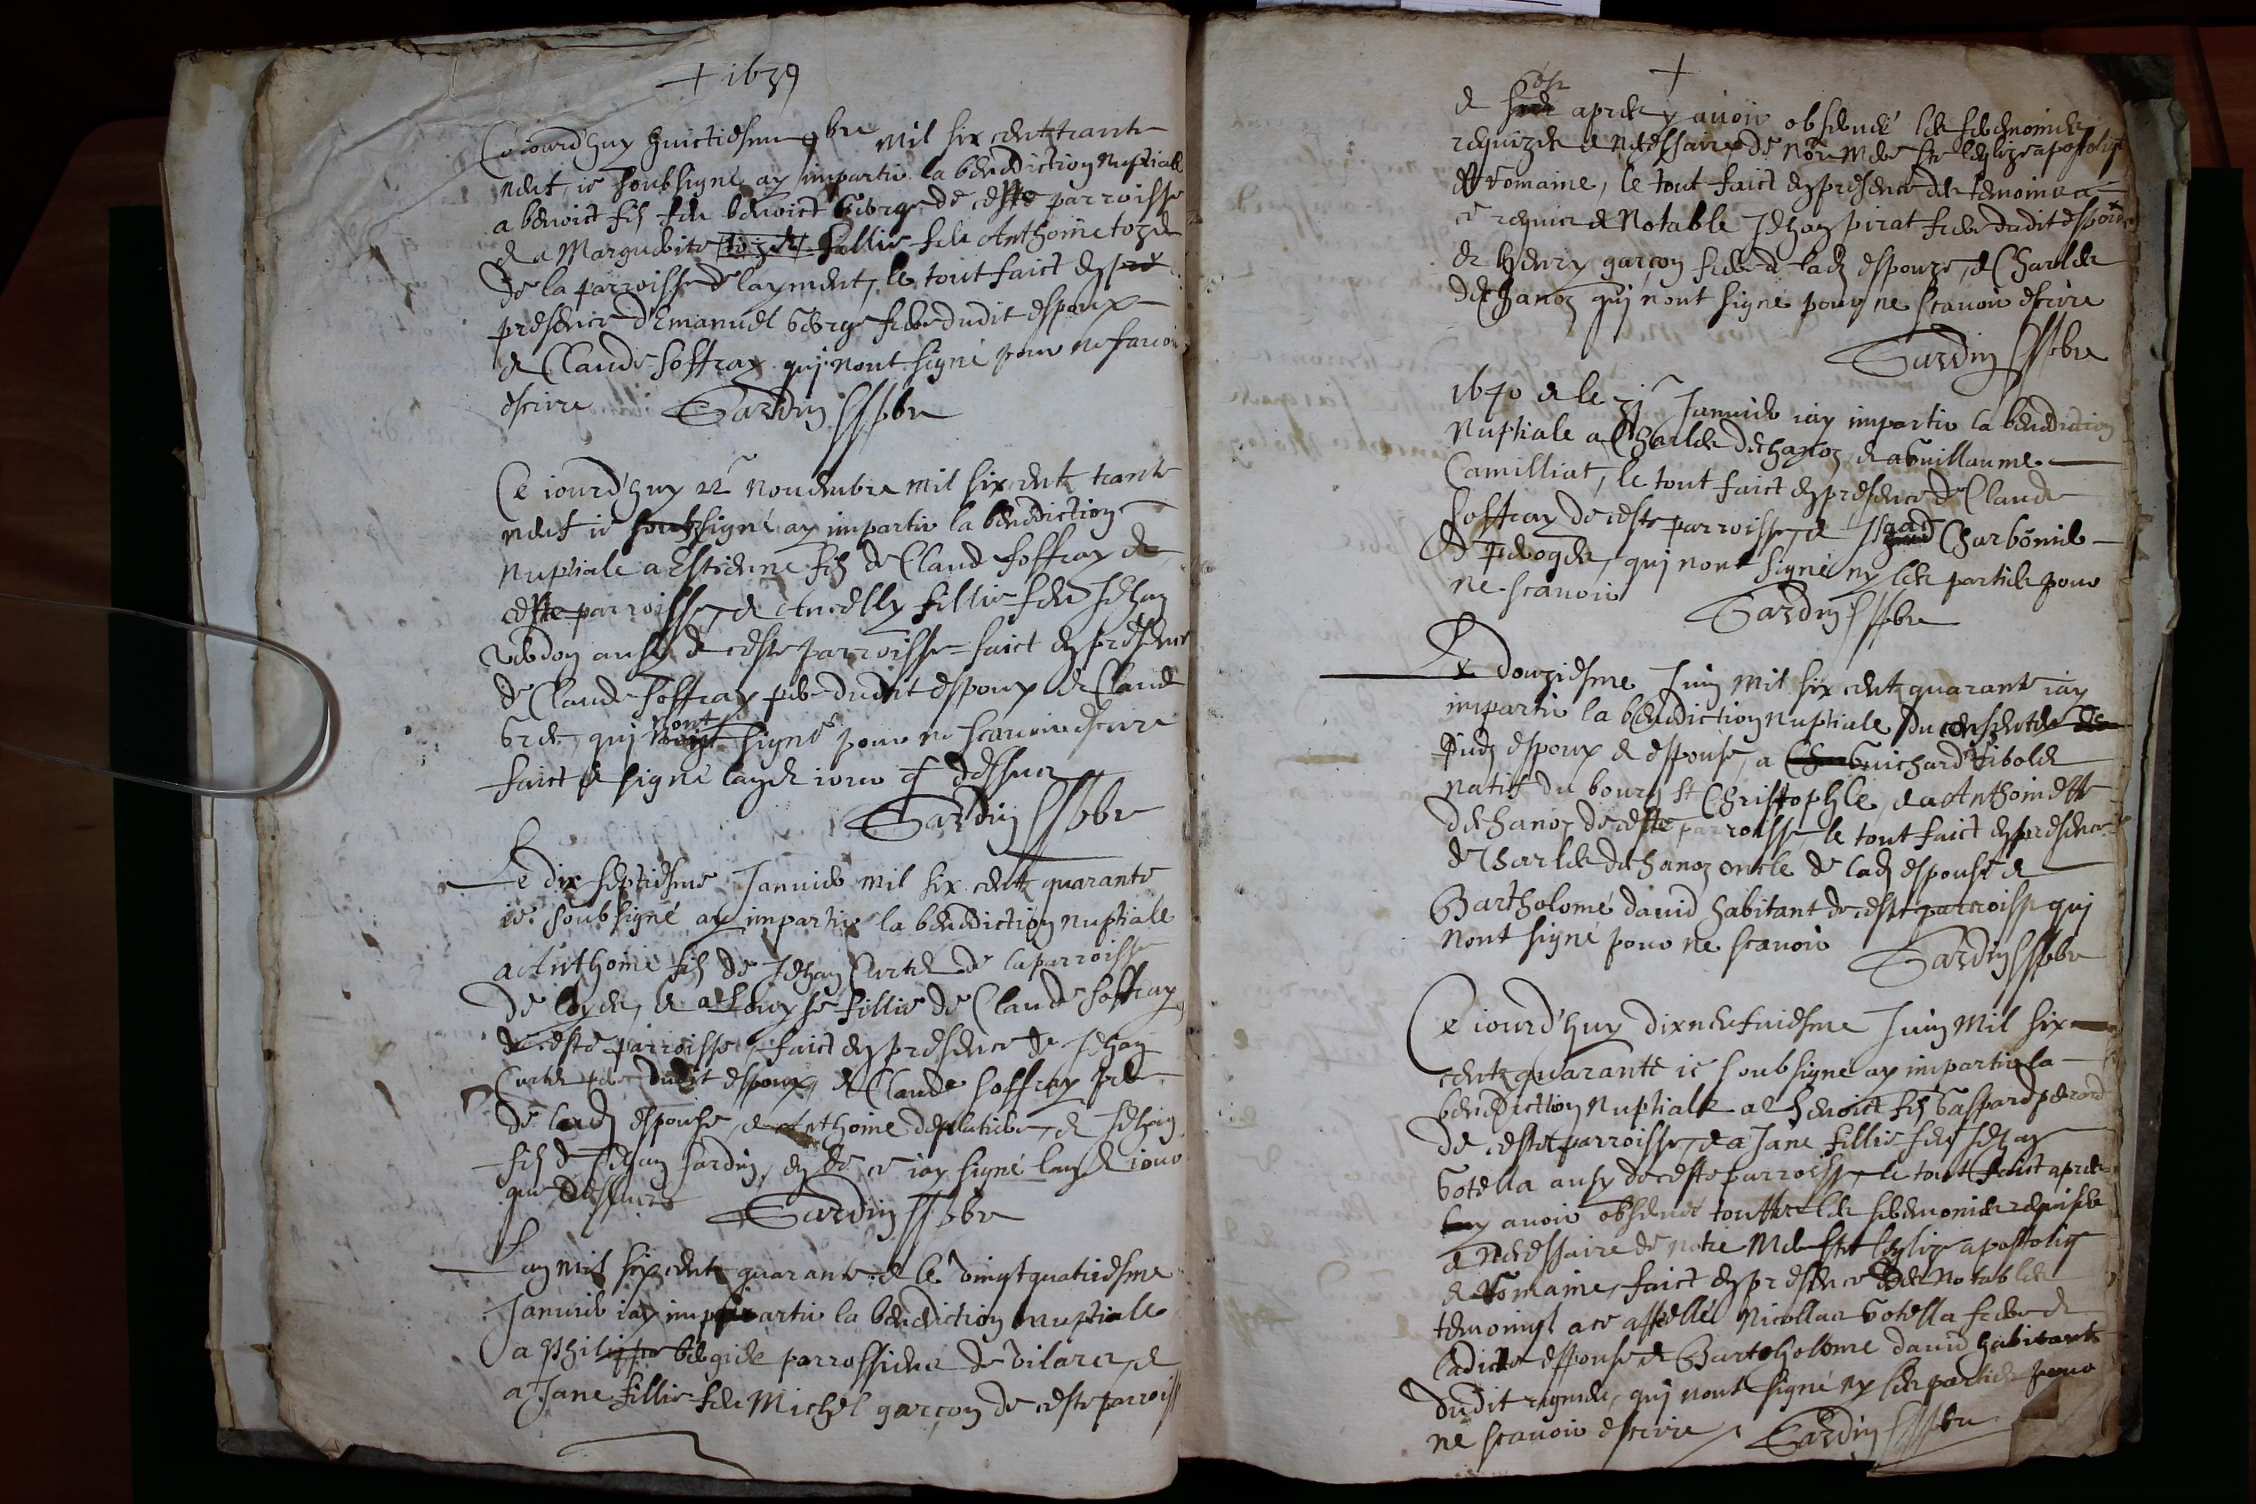 + 1639
Ce iourd'huy huictiesme 9bre mil six centz trante
neuf, ie soubsigné ay impartie la benediction nuptiale
a benoist filz feu benoist George de ceste parroisse
& a Marguerite fillie feu Anthoine tozel
de la parroisse de layment, le tout faict en
presence d'Emanuel George frere dudit espoux
& Claude soffray qui n'ont signé pour ne scavoir
escrire Sardin
Ce iourd'huy 22 nouembre mil six centz trante
neuf ie soubsigné ay impartie la benediction
nuptiale a Estienne filz de Claude soffray de
ceste parroisse, & Ancelly fillie feu Jehan
verdon ausy de ceste parroisse faict en presence
de Claude soffray pere dudit espoux & Claude
qui n'ont signé pour ne scauoir escrire
faict & signé lan & iour q dessus
Sardin
Le dix septiesme Januier mil six centz quarante
ie soubsigné ay impartie la benediction nuptiale
a Anthoine filz de Jehan Curtel de la parroisse
de & a Louyse fillie de Claude soffray
de ceste parroisse, faict en presence de Jehan
Curtel pere dudit espoux, & Claude soffray pere
de ladz espouse, & Anthoine & Jehan
filz de Jehan sardin, en de ce iay signé lan & iour
que dessus Sardin
Lan mil six centz quarante & le vingtquatriesme
Januier iay impartie la benediction nuptiale
a Philippe parrossien de vilars, &
a Jane fillie feu Michel garcon de ceste parroiss
+
& apres y auoir obserué les seremonies
requizes & necessaire de nore Mere ste leglize apostolique
& romaine, le tout faict en presence de temoins a
ce requis & notable Jehan pirat frere dudit espoux
& Henry garcon frere de ladz espouze, & Charles
dechanoz qui n'ont signé pour ne scauoir escrire
Sardin
1640 & le Januier iay impartie la benediction
Nuptiale a Charles dechanoz & a Guillaume
Camilliat, le tout faict en presence de Claude
soffray de ceste parroisse, & Isaac Charbonier
de qui n'ont signé ny les parties pour
ne scauoir Sardin
Le douziesme Juin mil six centz quarante iay
impartie la benediction nuptiale du de
sudz espoux & espouse, a Guichard tibolet
natif du bourg St Christophle, & a Anthoinette
dechanoz de ceste parroisse, le tout faict en presence
de Charles dechanoz oncle de ladz espouse &
Bartholomé dauid habitant de ceste parroisse qui
n'ont signé pour ne scauoir Sardin
Ce iourd'huy dixneufuiesme Juin mil six
centz quarante ie soubsigné ay impartie la
benediction nuptiale a benoict filz Gaspard perrod
de ceste parroisse, & a Jane fillie feu Jehan
Gotella ausy de ceste parroisse, le tout faict apres
auoir obserué touttes les seremonies requise
& necessaire de notre Mere ste leglize apostolique
& Romaine, faict en presence de notables
temoingt a ce appellé Nicollas Gotella frere de
ladicte espouse & Bartholomé dauid habitantz
dudit qui n'ont signé ny les parties pour
ne scauoir escrire Sardin